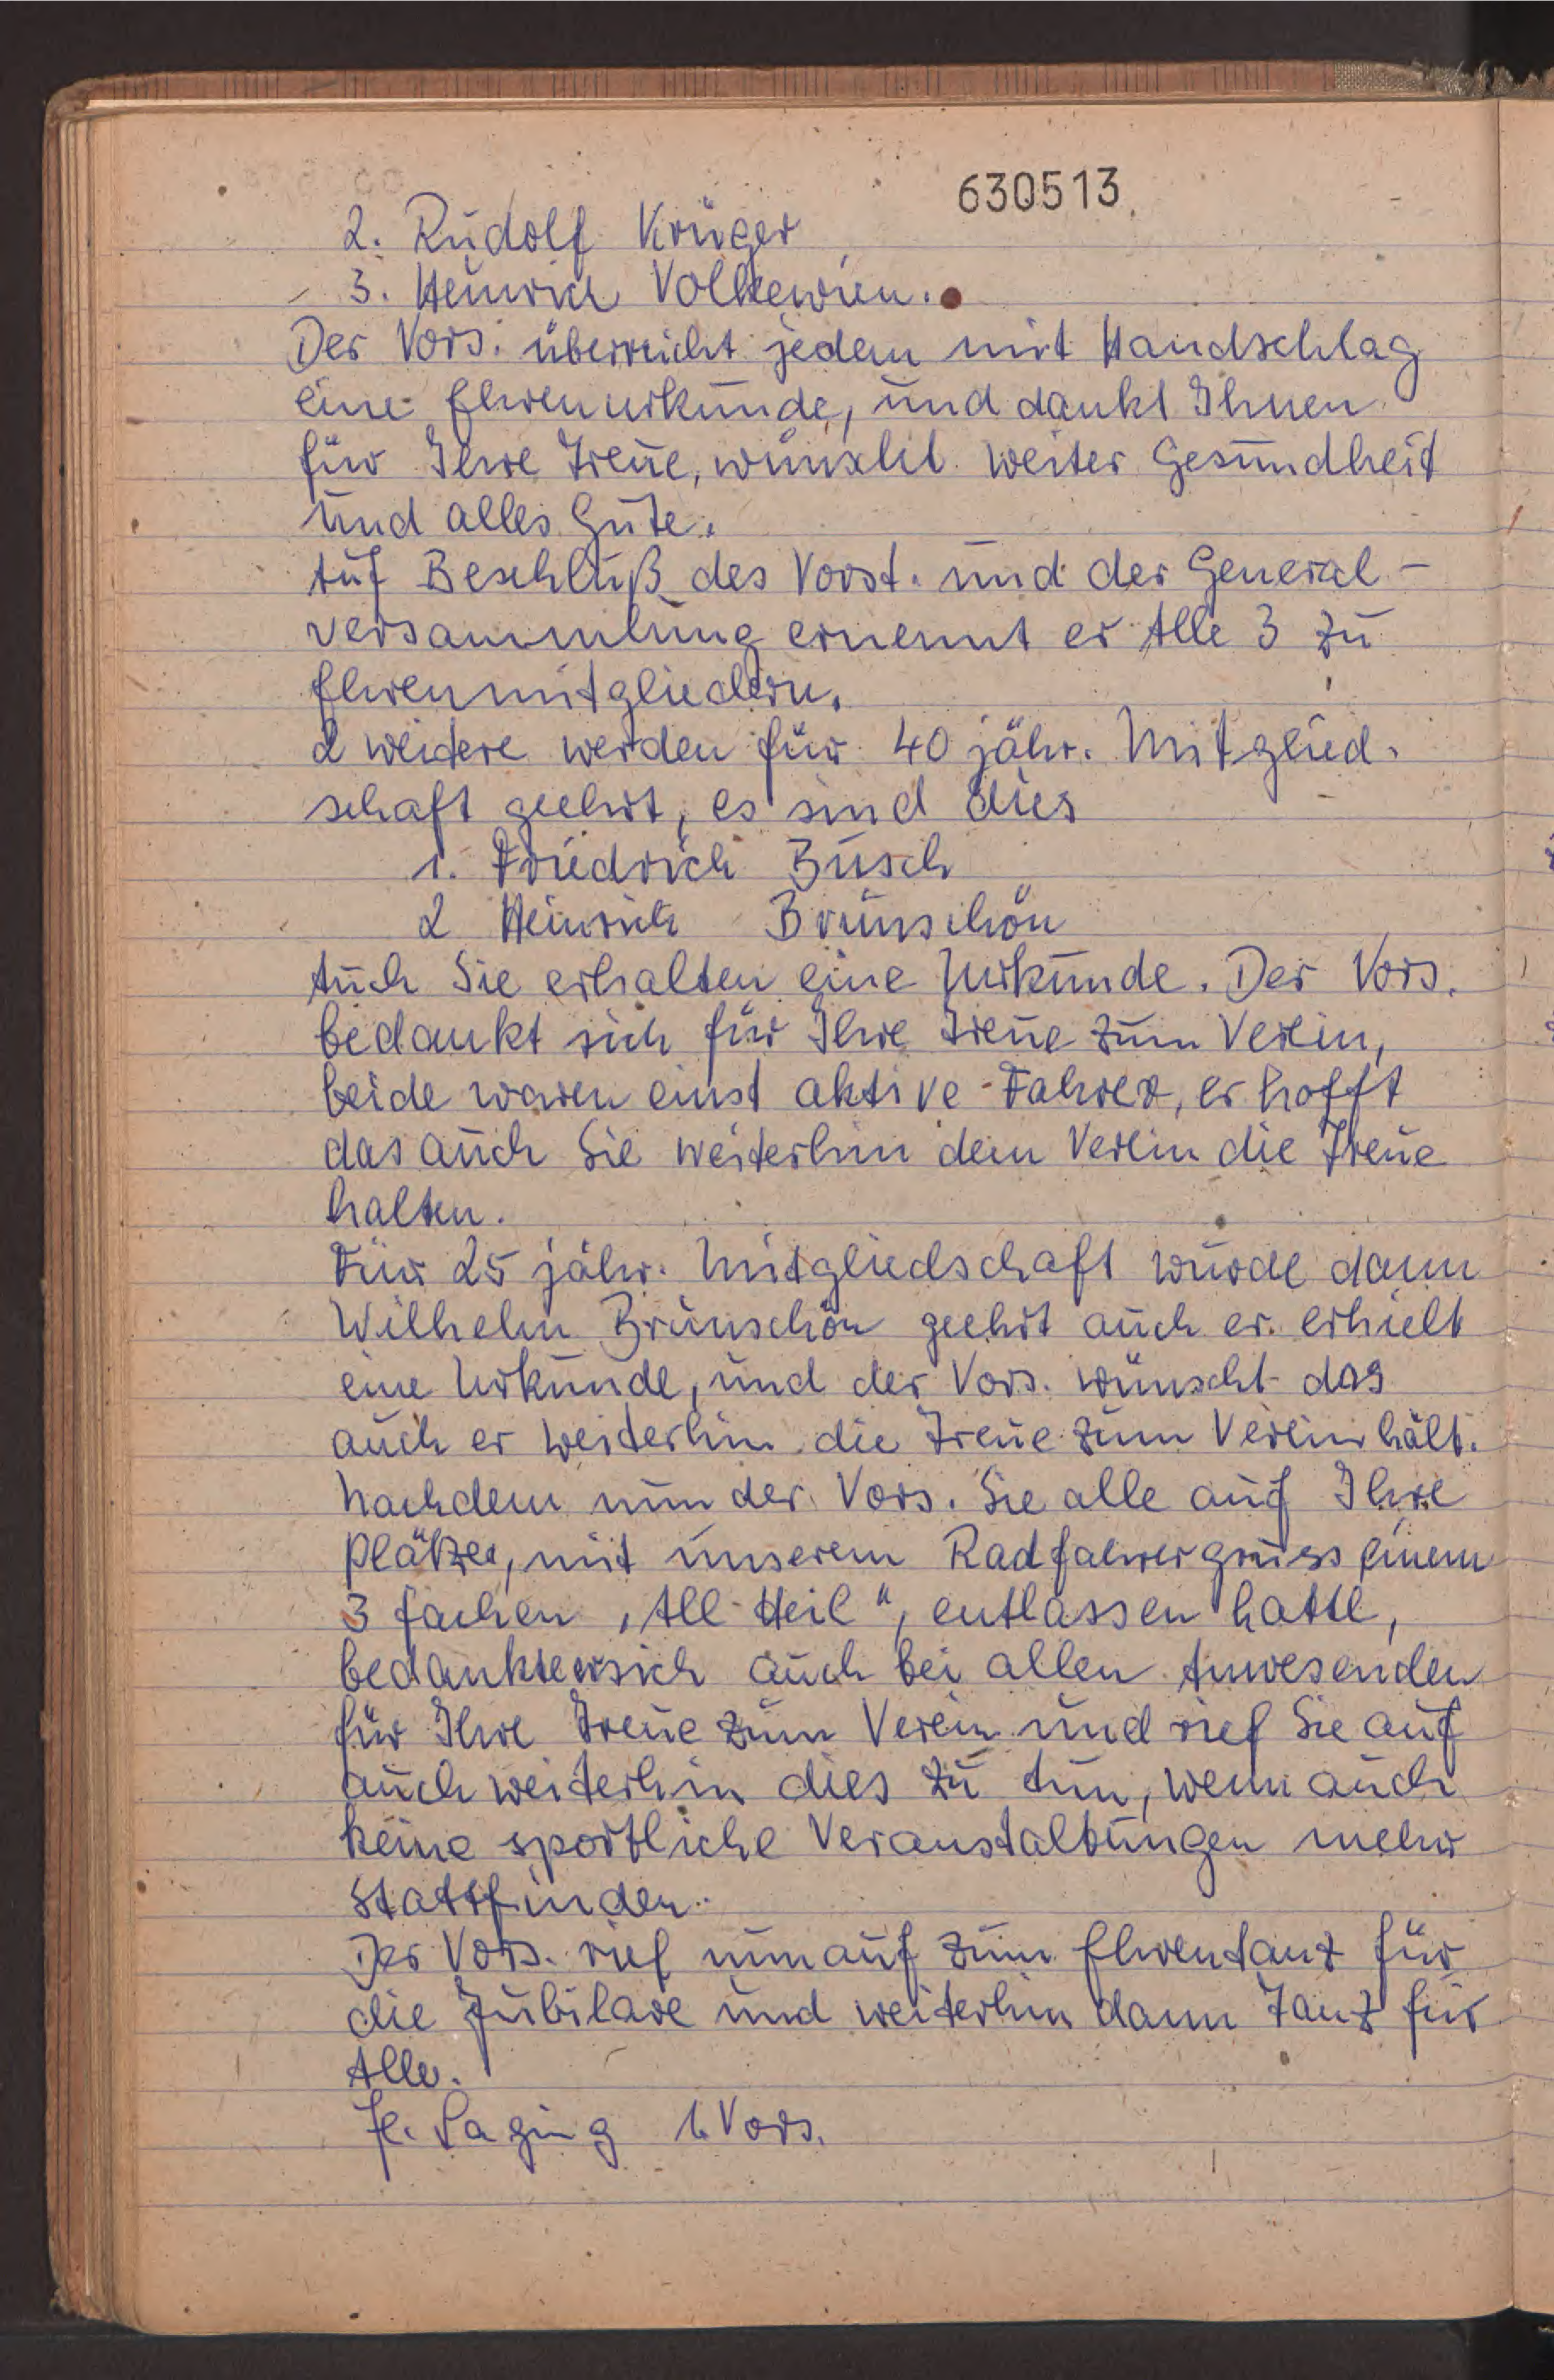 630513
2. Rudolf Krüger
3. Heinrich Volkewien.
Der Vors. überreicht jedem mit Handschlag
eine Ehrenurkunde, und dankt Ihnen
für Ihre Treue, wünscht weiter Gesundheit
und alles Gute.
Auf Beschluß des Vorst. und der General-
versammlung ernennt er Alle 3 zu
Ehrenmitgliedern.
2 weitere werden für 40 jähr. Mitglied.
schaft geehrt, es sind dies
1. Friedrich Busch
2 Heinrich Brünschön
Auch Sie erhalten eine Urkunde. Der Vors.
bedankt sich für Ihre Treue zum Verein,
beide waren einst aktive Fahrer, er hofft
das auch Sie weiterhin dem Verein die Treue
halten.
Für 25 jähr. Mitgliedschaft wurde dann
Wilhelm Brünschön geehrt auch er erhielt
eine Urkunde, und der Vors. wünscht das
auch er weiterhin die Treue zum Verein hält.
Nachdem nun der Vors. Sie alle auf Ihre
Plätze, mit unserem Radfahrergruss einem
3 fachen „All-Heil“, entlassen hatte,
bedankte er sich auch bei allen Anwesenden
für Ihre Treue zum Verein und rief Sie auf
auch weiterhin dies zu tun, wenn auch
keine sportliche Veranstaltungen mehr
stattfinden.
Der Vors. rief nun auf zum Ehrentanz für
die Jubilare und weiterhin dann Tanz für
Alle.
H. Saging 1. Vors.